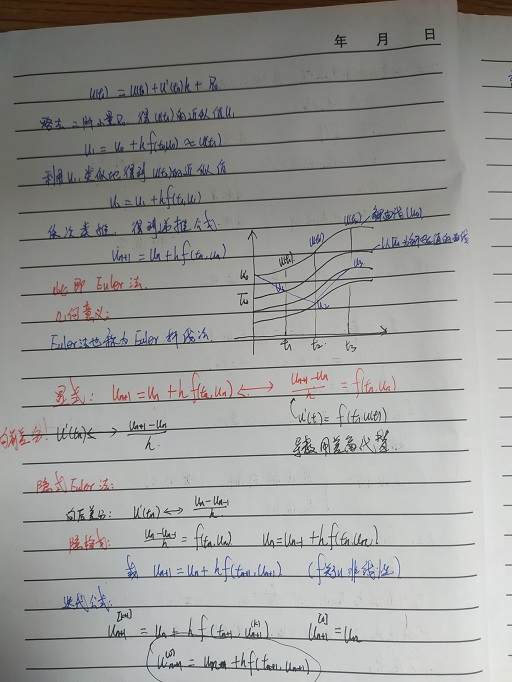 年 月 日
u(t₁) = u(t₀) + u'(t₀)h + R₀
略去二阶小量R₀ 得u(t₁)的近似值u₁
u₁ = u₀ + hf(t₀,u₀) ≈ u(t₁)
利用u₁类似地得到u(t₂)的近似值
u₂ = u₁ + hf(t₁,u₁)
依次类推, 得到递推公式.
uₙ₊₁ = uₙ + hf(tₙ,uₙ)
此即Euler法.
几何意义:
Euler法也称为Euler折线法.
u₀
u₁
u₂
u₃
t₁ t₂ t₃
显式: uₙ₊₁ = uₙ + hf(tₙ,uₙ) ⟷ (uₙ₊₁-uₙ)/h = f(tₙ,uₙ)
u'(t) = f(t,u(t))
向前差分: u'(tₙ) ⟷ (uₙ₊₁-uₙ)/h
导数用差商代替.
隐式Euler法:
向后差分: u'(tₙ) ⟷ (uₙ-uₙ₋₁)/h
隐格式: (uₙ-uₙ₋₁)/h = f(tₙ,uₙ) uₙ = uₙ₋₁ + hf(tₙ,uₙ)
uₙ₊₁ = uₙ + hf(tₙ₊₁,uₙ₊₁) (f关于u非线性)
迭代公式:
uₙ₊₁^[k+1] = uₙ + hf(tₙ₊₁,uₙ₊₁^(k)) uₙ₊₁^[0] = uₙ